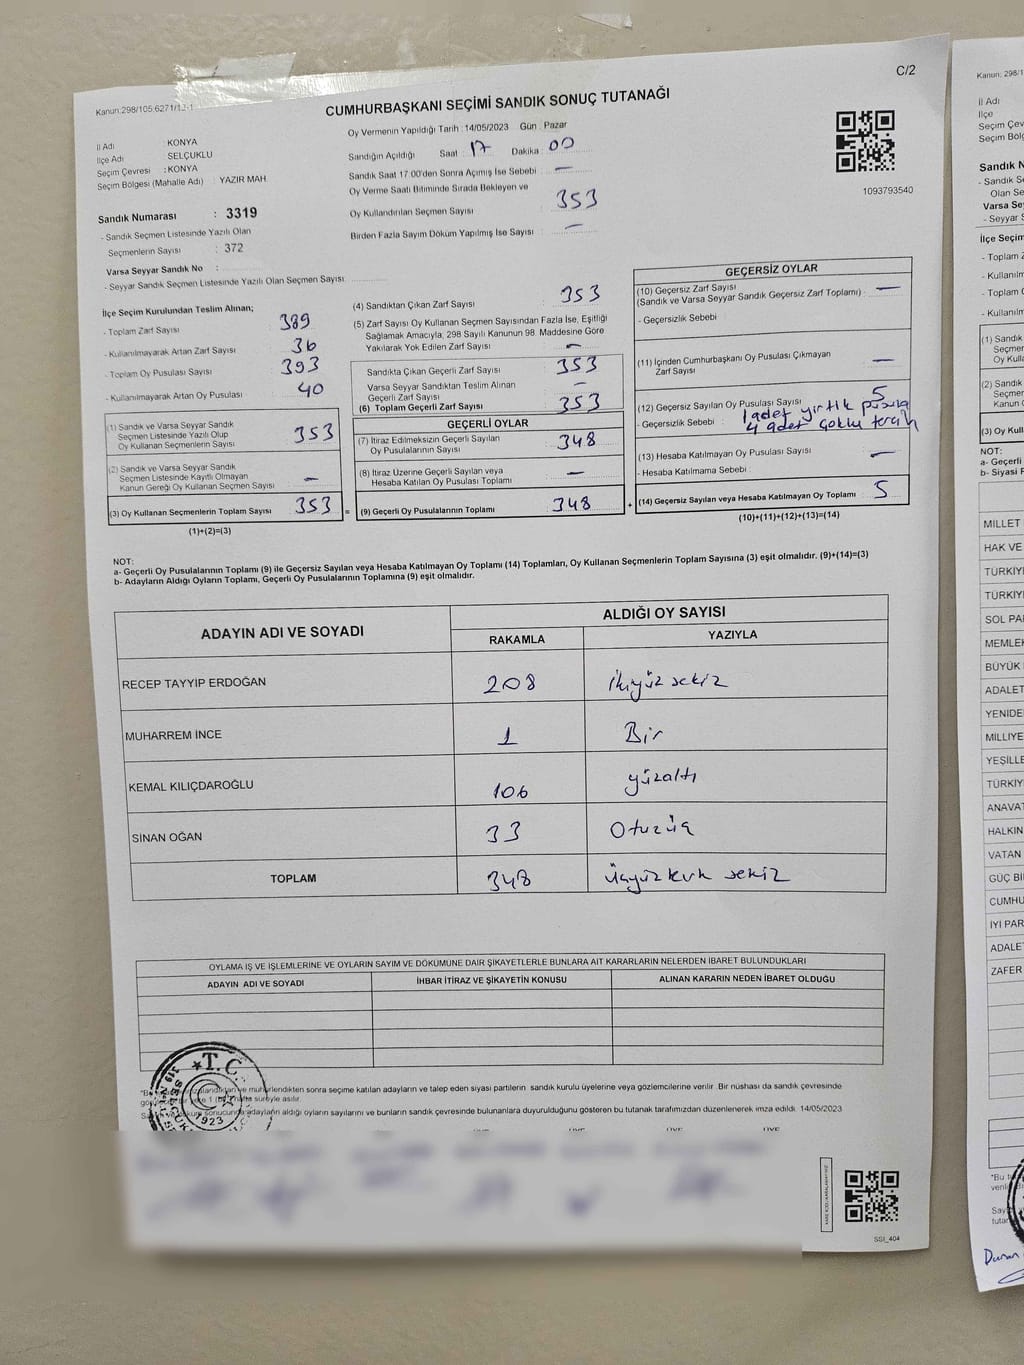 C/2
Kanun:298/105;6271/12-1
CUMHURBAŞKANI SEÇİMİ SANDIK SONUÇ TUTANAĞI
İl Adı KONYA
İlçe Adı SELÇUKLU
Seçim Çevresi : KONYA
Seçim Bölgesi (Mahalle Adı) : YAZIR MAH.
Sandık Numarası : 3319
- Sandık Seçmen Listesinde Yazılı Olan
Seçmenlerin Sayısı : 372
Varsa Seyyar Sandık No :
- Seyyar Sandık Seçmen Listesinde Yazılı Olan Seçmen Sayısı
Oy Vermenin Yapıldığı Tarih :14/05/2023 Gün : Pazar
Sandığın Açıldığı Saat : 17 Dakika : 00
Sandık Saat 17:00'den Sonra Açımış İse Sebebi : —
Oy Verme Saati Bitiminde Sırada Bekleyen ve
Oy Kullandırılan Seçmen Sayısı : 353
Birden Fazla Sayım Döküm Yapılmış İse Sayısı : —
1093793540
İlçe Seçim Kurulundan Teslim Alınan;
- Toplam Zarf Sayısı : 389
- Kullanılmayarak Artan Zarf Sayısı : 36
- Toplam Oy Pusulası Sayısı : 393
- Kullanılmayarak Artan Oy Pusulası : 40
(1) Sandık ve Varsa Seyyar Sandık
Seçmen Listesinde Yazılı Olup
Oy Kullanan Seçmenlerin Sayısı : 353
(2) Sandık ve Varsa Seyyar Sandık
Seçmen Listesinde Kayıtlı Olmayan
Kanun Gereği Oy Kullanan Seçmen Sayısı : —
(3) Oy Kullanan Seçmenlerin Toplam Sayısı : 353
(1)+(2)=(3)
(4) Sandıktan Çıkan Zarf Sayısı : 353
(5) Zarf Sayısı Oy Kullanan Seçmen Sayısından Fazla İse, Eşitliği
Sağlamak Amacıyla, 298 Sayılı Kanunun 98. Maddesine Göre
Yakılarak Yok Edilen Zarf Sayısı : —
Sandıkta Çıkan Geçerli Zarf Sayısı : 353
Varsa Seyyar Sandıktan Teslim Alınan
Geçerli Zarf Sayısı : —
(6) Toplam Geçerli Zarf Sayısı : 353
GEÇERLİ OYLAR
(7) İtiraz Edilmeksizin Geçerli Sayılan
Oy Pusulalarının Sayısı : 348
(8) İtiraz Üzerine Geçerli Sayılan veya
Hesaba Katılan Oy Pusulası Toplamı : —
= (9) Geçerli Oy Pusulalarının Toplamı : 348 +
GEÇERSİZ OYLAR
(10) Geçersiz Zarf Sayısı
(Sandık ve Varsa Seyyar Sandık Geçersiz Zarf Toplamı) : —
- Geçersizlik Sebebi :
(11) İçinden Cumhurbaşkanı Oy Pusulası Çıkmayan
Zarf Sayısı : —
(12) Geçersiz Sayılan Oy Pusulası Sayısı : 5
- Geçersizlik Sebebi : 1 adet yırtık pusula
4 adet çoklu tercih
(13) Hesaba Katılmayan Oy Pusulası Sayısı : —
- Hesaba Katılmama Sebebi :
(14) Geçersiz Sayılan veya Hesaba Katılmayan Oy Toplamı : 5
(10)+(11)+(12)+(13)=(14)
NOT:
a- Geçerli Oy Pusulalarının Toplamı (9) ile Geçersiz Sayılan veya Hesaba Katılmayan Oy Toplamı (14) Toplamları, Oy Kullanan Seçmenlerin Toplam Sayısına (3) eşit olmalıdır. (9)+(14)=(3)
b- Adayların Aldığı Oyların Toplamı, Geçerli Oy Pusulalarının Toplamına (9) eşit olmalıdır.
ADAYIN ADI VE SOYADI ALDIĞI OY SAYISI
RAKAMLA YAZIYLA
RECEP TAYYIP ERDOĞAN 208 ikiyüz sekiz
MUHARREM İNCE 1 Bir
KEMAL KILIÇDAROĞLU 106 yüzaltı
SİNAN OĞAN 33 Otuzüç
TOPLAM 348 üçyüz kırk sekiz
OYLAMA İŞ VE İŞLEMLERİNE VE OYLARIN SAYIM VE DÖKÜMÜNE DAİR ŞİKAYETLERLE BUNLARA AİT KARARLARIN NELERDEN İBARET BULUNDUKLARI
ADAYIN ADI VE SOYADI İHBAR İTİRAZ VE ŞİKAYETİN KONUSU ALINAN KARARIN NEDEN İBARET OLDUĞU
T.C.
1923
mühürlendikten sonra seçime katılan adayların ve talep eden siyasi partilerin sandık kurulu üyelerine veya gözlemcilerine verilir. Bir nüshası da sandık çevresinde
süreyle asılır.
sonucunda adayların aldığı oyların sayılarını ve bunların sandık çevresinde bulunanlara duyurulduğunu gösteren bu tutanak tarafımızdan düzenlenerek imza edildi. 14/05/2023
SSI_404
Kanun: 298/1
İl Adı
İlçe
Seçim Çev
Seçim Böl
Sandık N
- Sandık Se
Olan Se
Varsa Sey
- Seyyar S
İlçe Seçim
- Toplam Z
- Kullanılm
- Toplam O
- Kullanılm
(1) Sandık
Seçmer
Oy Kulla
(2) Sandık
Seçmen
Kanun G
(3) Oy Kull
NOT:
a- Geçerli
b- Siyasi F
MİLLET
HAK VE
TÜRKİYE
TÜRKİYE
SOL PA
MEMLEK
BÜYÜK
ADALET
YENİDE
MİLLİYE
YEŞİLLE
TÜRKİY
ANAVAT
HALKIN
VATAN
GÜÇ Bİ
CUMHU
İYİ PAR
ADALET
ZAFER